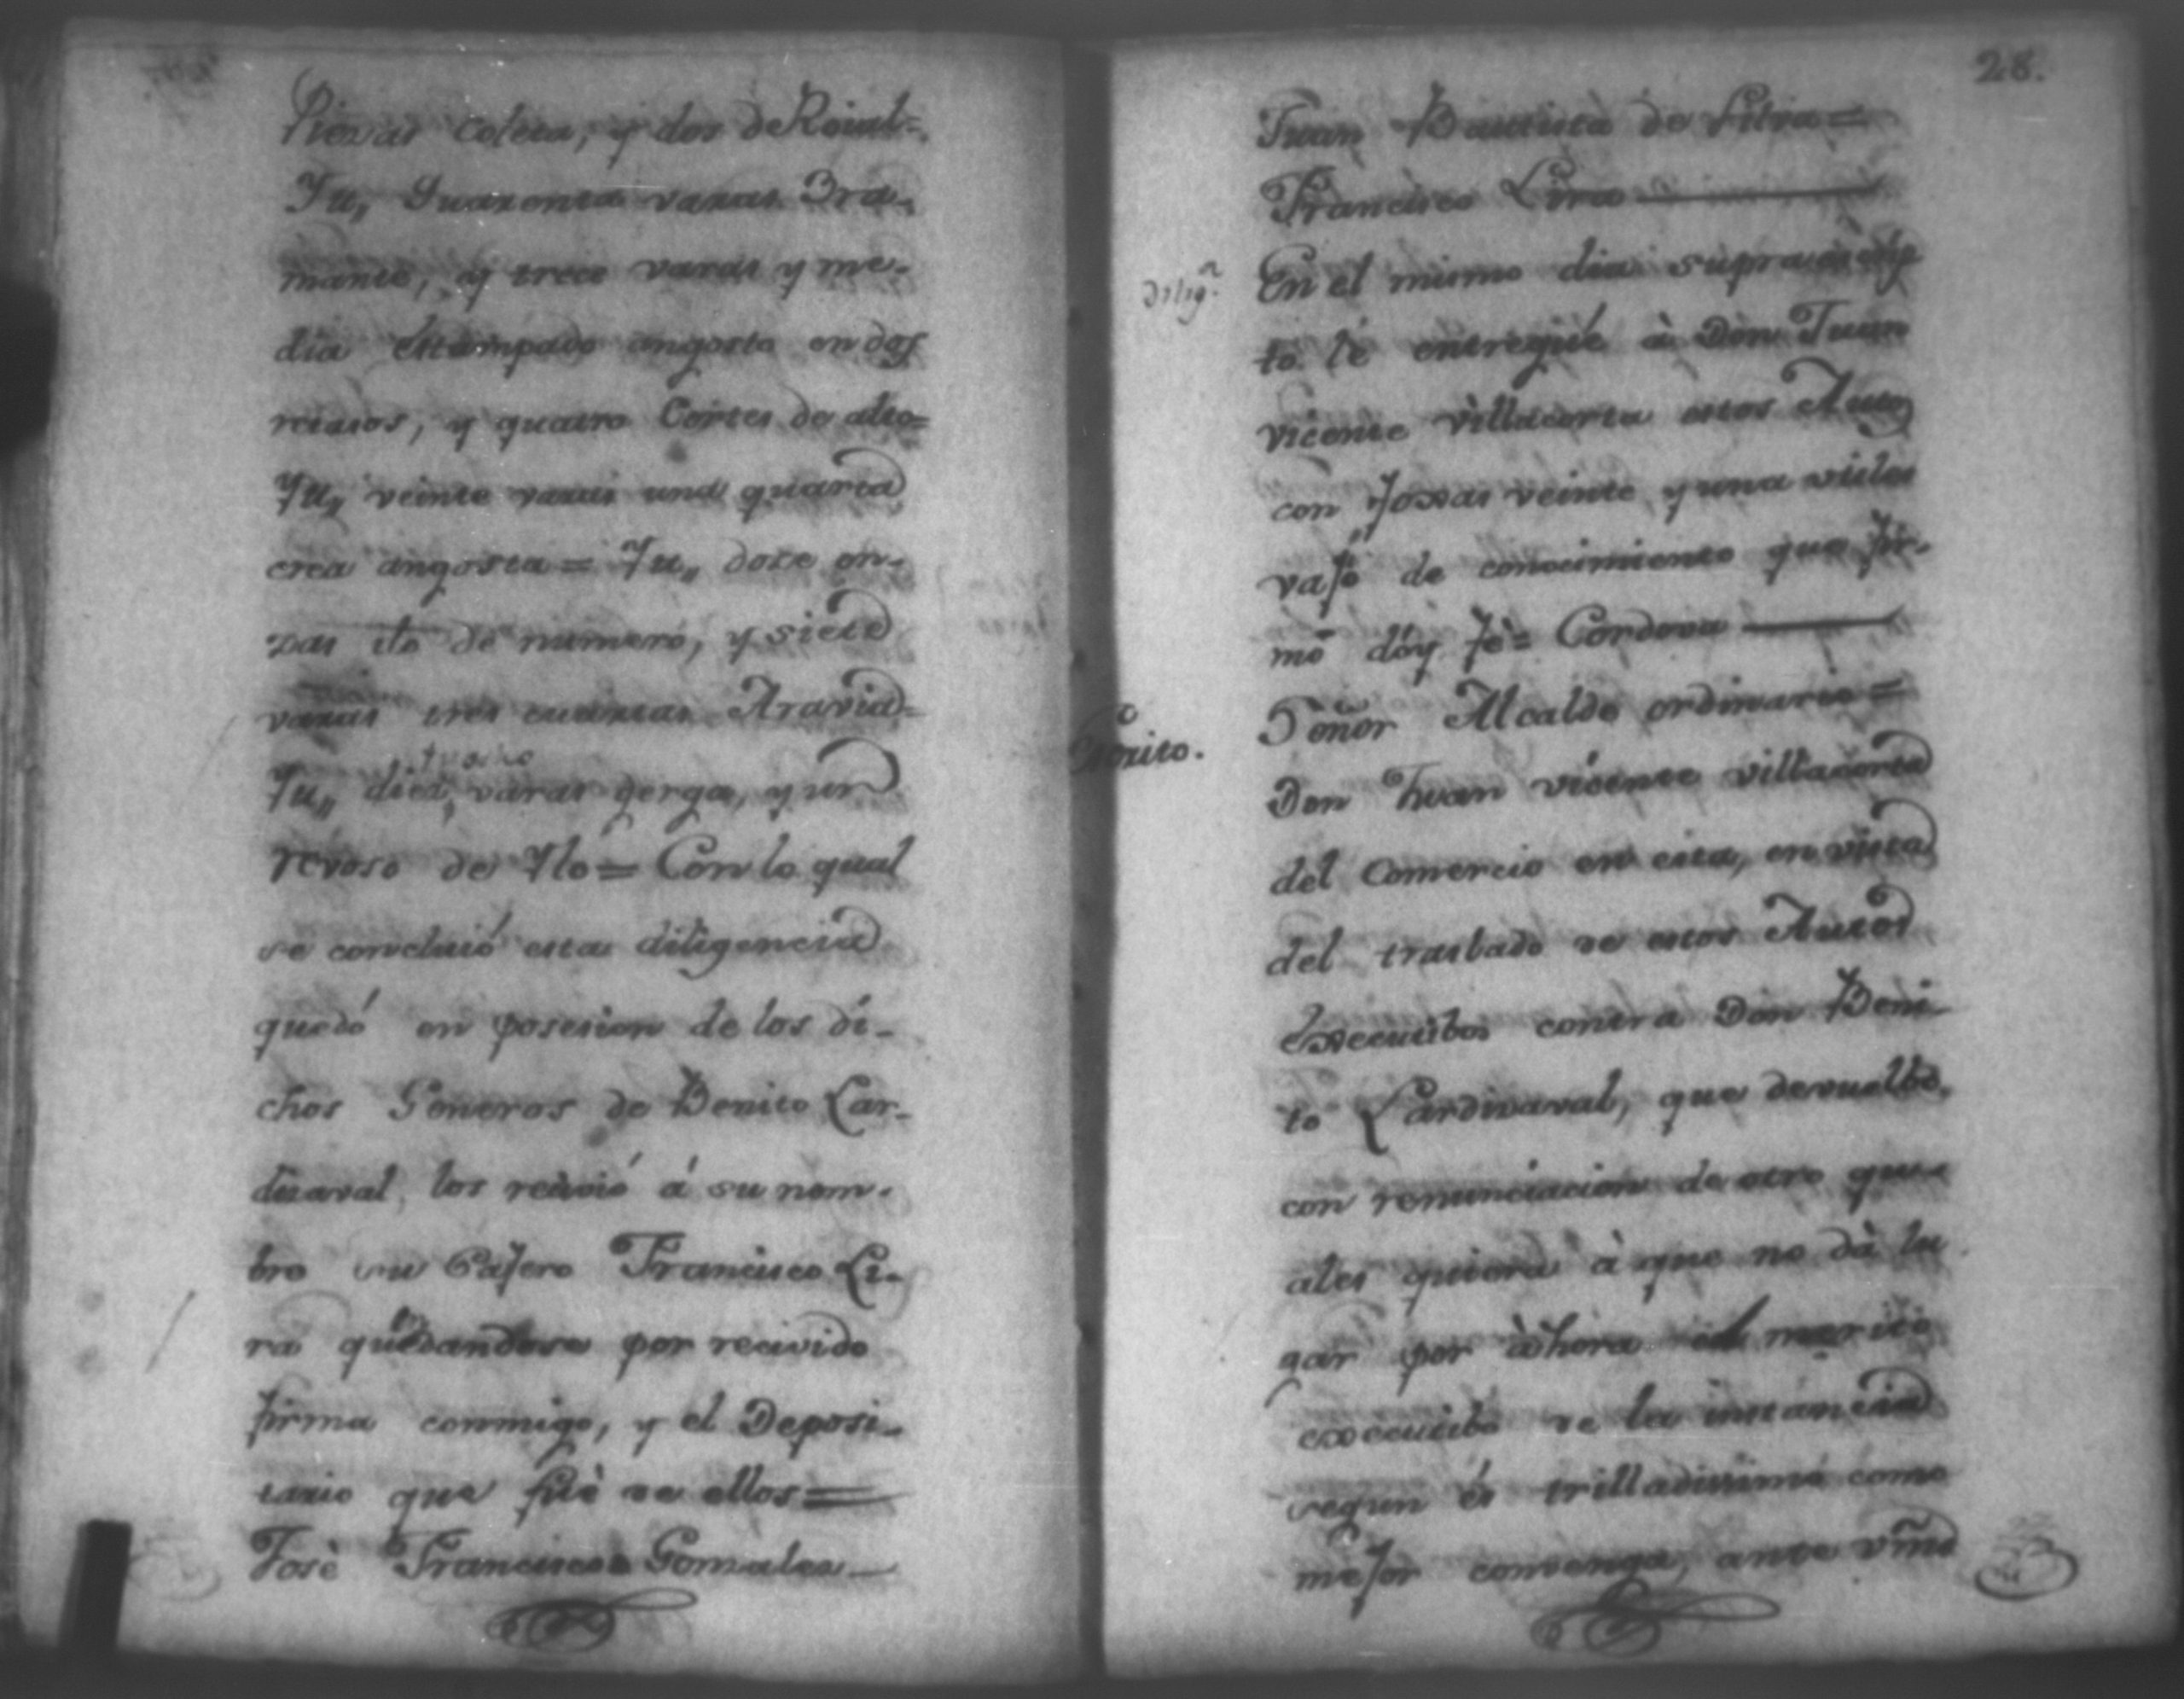 Piezas coleta, y dos de Roial=
Yt,, Quarenta varas Bra-
mante, y trece varas y me-
dia estampado angosto en dos
retasos, y quatro Cortes de alto=
Yt,, veinte varas una quarta
crea angosta= Yt,, doce on-
zas ilo de numero, y siete
varas tres cuartas Aravia=
Yt,, diez, varas gerga, y un
revoso de Ylo= Con lo qual
se concluió esta diligencia
quedó en posesion de los di-
chos Generos de Benito Car-
dizaval, los recivió á su nom-
bre su Cajero Francisco Li-
ra quedandose por recivido
firma conmigo, y el Deposi-
tario que fuè de ellos=
Josè Francisco Gonzales
28.
Juan Bautista de
Francisco Lira
dilig.a
En el mismo dia supraescrip
to le entreguè à Don Juan
vicente villacorta estos Autos
con foxas veinte y una utiles
vajo de conocimiento que fir-
mó doy fè= Cordova
Señor Alcalde ordinario=
Don Juan vicente villacorta
del Comercio en esta, en vista
del traslado de estos Autos
execucibos contra Don Beni-
to Cardizaval, que devuelbo,
con renunciacion de otro qu
ales quiera à que no dà lu
gar por àhora el merito
execucibo de la instancia
segun és trilladissimo como
mejor convenga, ante vmd